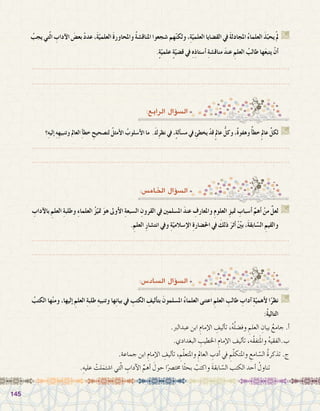 لَمْ يُحبِّذ العلماءُ المجادلةَ في القضايا العلميّة، ولكنّهم شجعوا المناقشةَ والمحاورةَ العلميّة، عددْ بعضَ الآدابِ الّتي يجبُ
أنْ يتبعَها طالبُ العلمِ عندَ مناقشةِ أستاذِهِ في قضيّةٍ علميّةٍ.
• السؤال الرابع:
لكلِّ عالمٍ خطأٌ وهفوةٌ، وكلُّ عالمٍ قدْ يخطئ في مسألةٍ، في نظرِكَ. ما الأسلوبُ الأمثلُ لتصحيحِ خطأ العالمِ وتنبيهِهِ إليه؟
• السؤال الخامس:
لعلَّ منْ أهمِّ أسبابِ تميزِ العلومِ والمعارفِ عندَ المسلمينَ في القرونِ السبعةِ الأولى هوَ تميُّز العلماءِ وطلبةِ العلمِ بالآدابِ
والقيمِ السّابقةِ، بيِّنْ أثرَ ذلكَ في الحضارةِ الإسلاميّةِ وفي انتشارِ العلمِ.
• السؤال السادس:
نظرًا لأهميّةِ آدابِ طالبِ العلمِ اعتنى العلماءُ المسلمونَ بتأليفِ الكتبِ في بيانِها وتنبيهِ طلبةِ العلمِ إليها، ومنْها الكتبُ
التاليةُ:
أ. جامعُ بيانِ العلمِ وفضلُهُ، تأليف الإمامِ ابنِ عبدالبر.
ب.الفقيهُ والمتفقّه، تأليف الإمامِ الخطيبِ البغدادي.
ج. تذكرةُ السامعِ والمتكلّمِ في أدبِ العالمِ والمتعلّمِ، تأليف الإمامِ ابنِ جماعة.
تناولْ أحدَ الكتبِ السّابقةِ واكتبْ بحثًا مختصرًا حولَ أهمِّ الآدابِ الّتي اشتملتْ عليه.
145